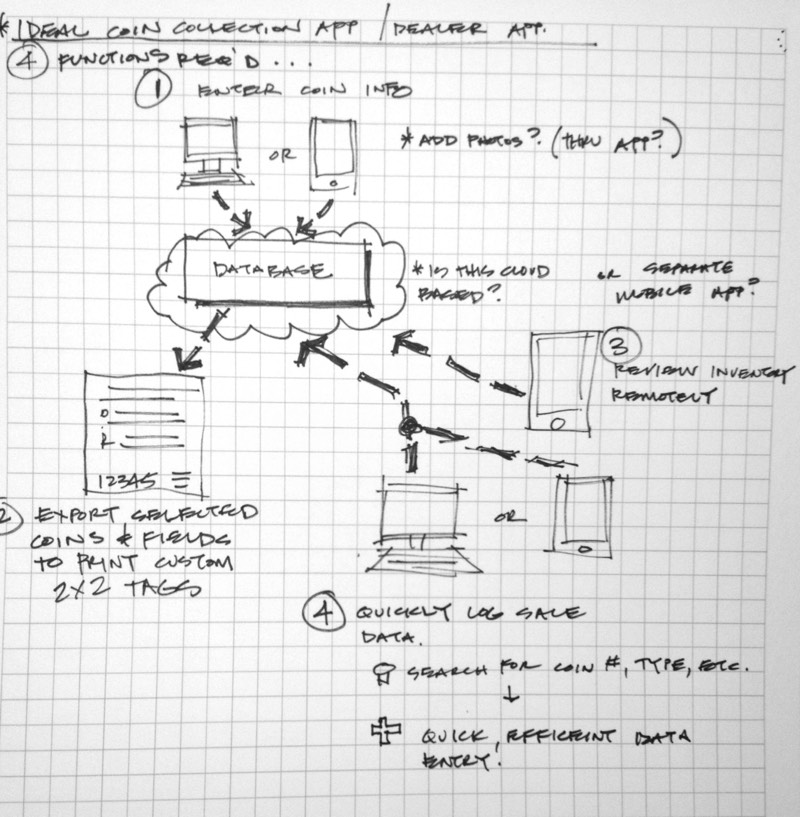 * IDEAL COIN COLLECTION APP / DEALER APP.
④ FUNCTIONS REQ'D...
① ENTER COIN INFO
OR
* ADD PHOTOS? (THRU APP?)
DATABASE
* IS THIS CLOUD
BASED?
OR SEPARATE
MOBILE APP?
③
REVIEW INVENTORY
REMOTELY
12345
2 EXPORT SELECTED
COINS & FIELDS
TO PRINT CUSTOM
2X2 TAGS
OR
④ QUICKLY LOG SALE
DATA.
SEARCH FOR COIN #, TYPE, ETC.
↓
QUICK, EFFICEINT DATA
ENTRY!